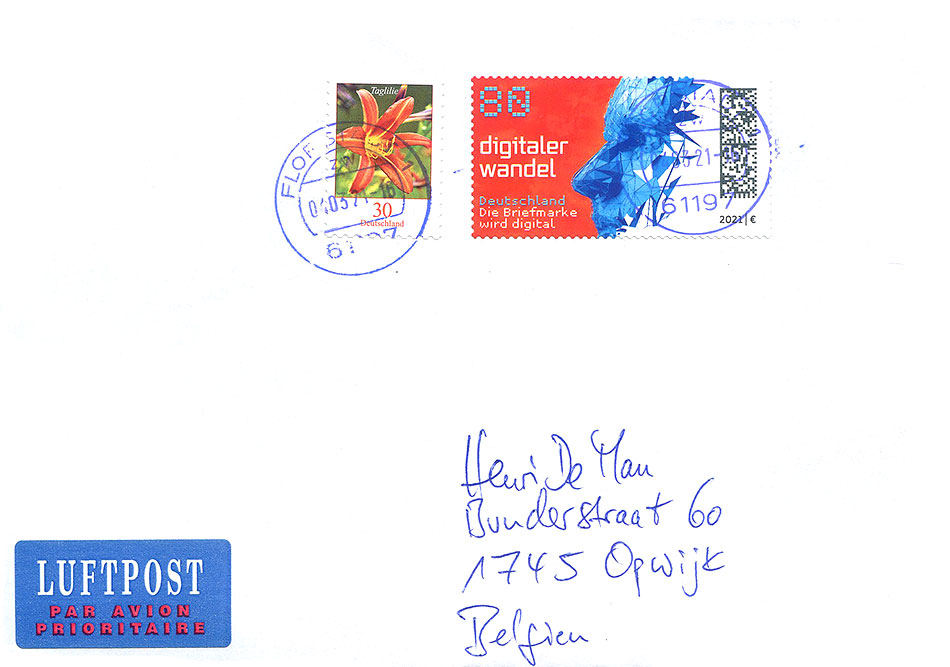 Taglilie
30
Deutschland
80
digitaler
wandel
Deutschland
Die Briefmarke
wird digital
2021 | €
61197
61197
Henri De Man
Bunderstraat 60
1745 Opwijk
Belgien
LUFTPOST
PAR AVION
PRIORITAIRE